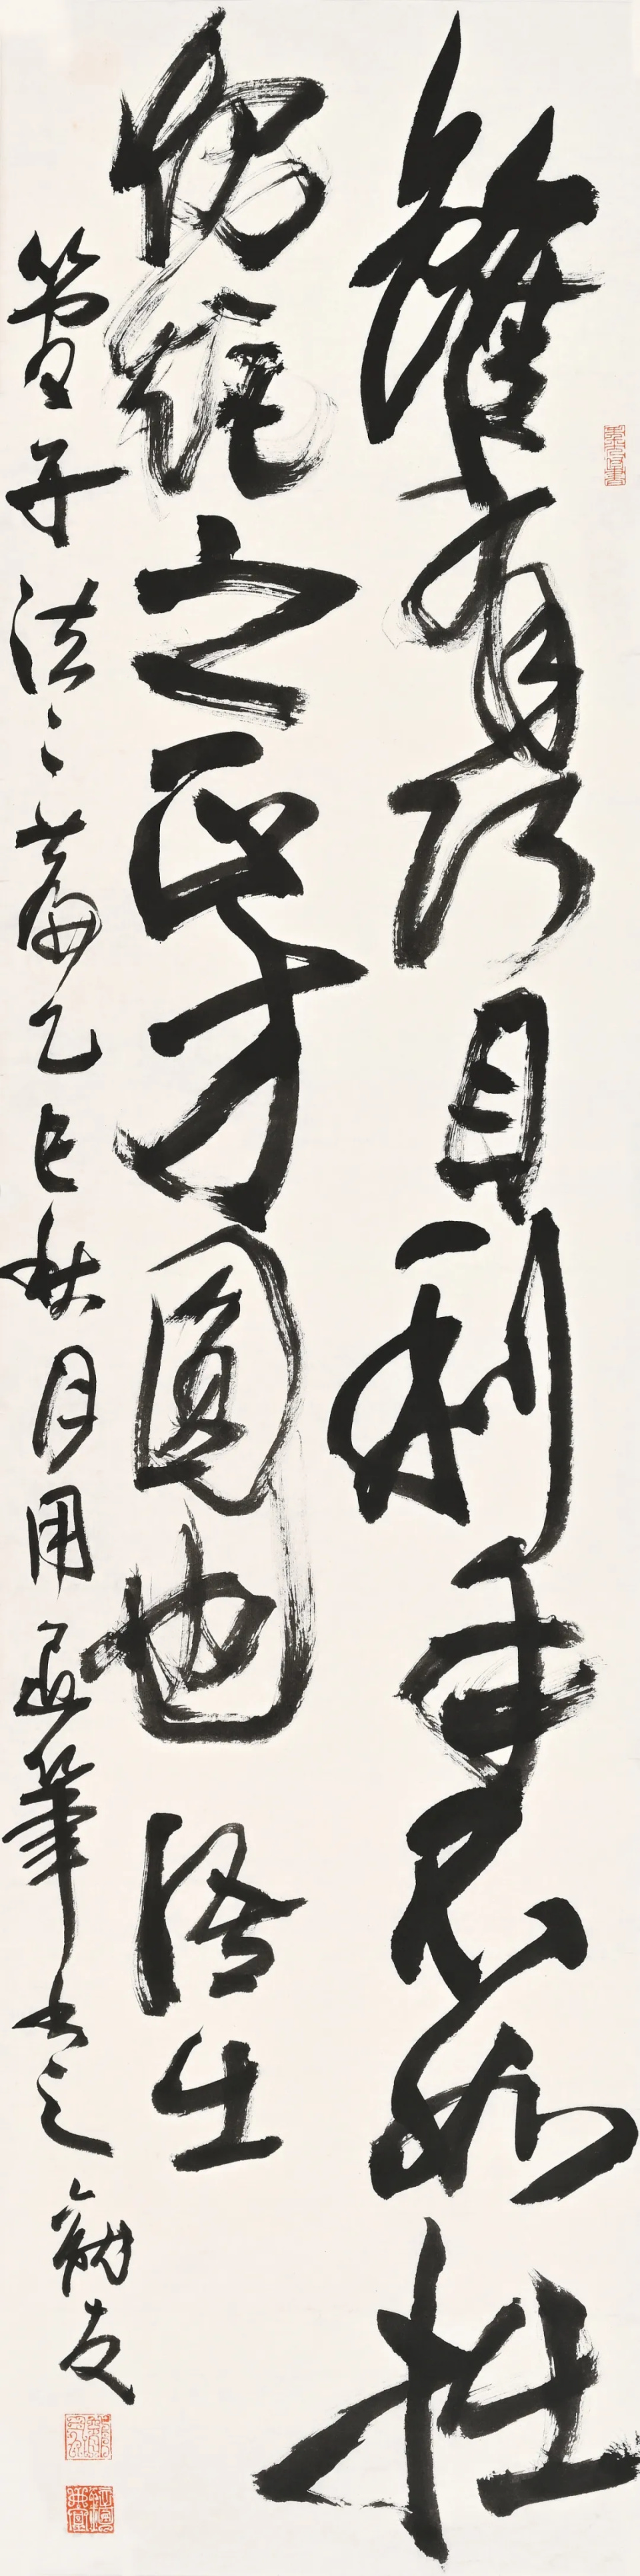 雖有巧目利手不如拙
規矩之正方圓也語出
管子法〻篇乙巳秋月用退筆書之友